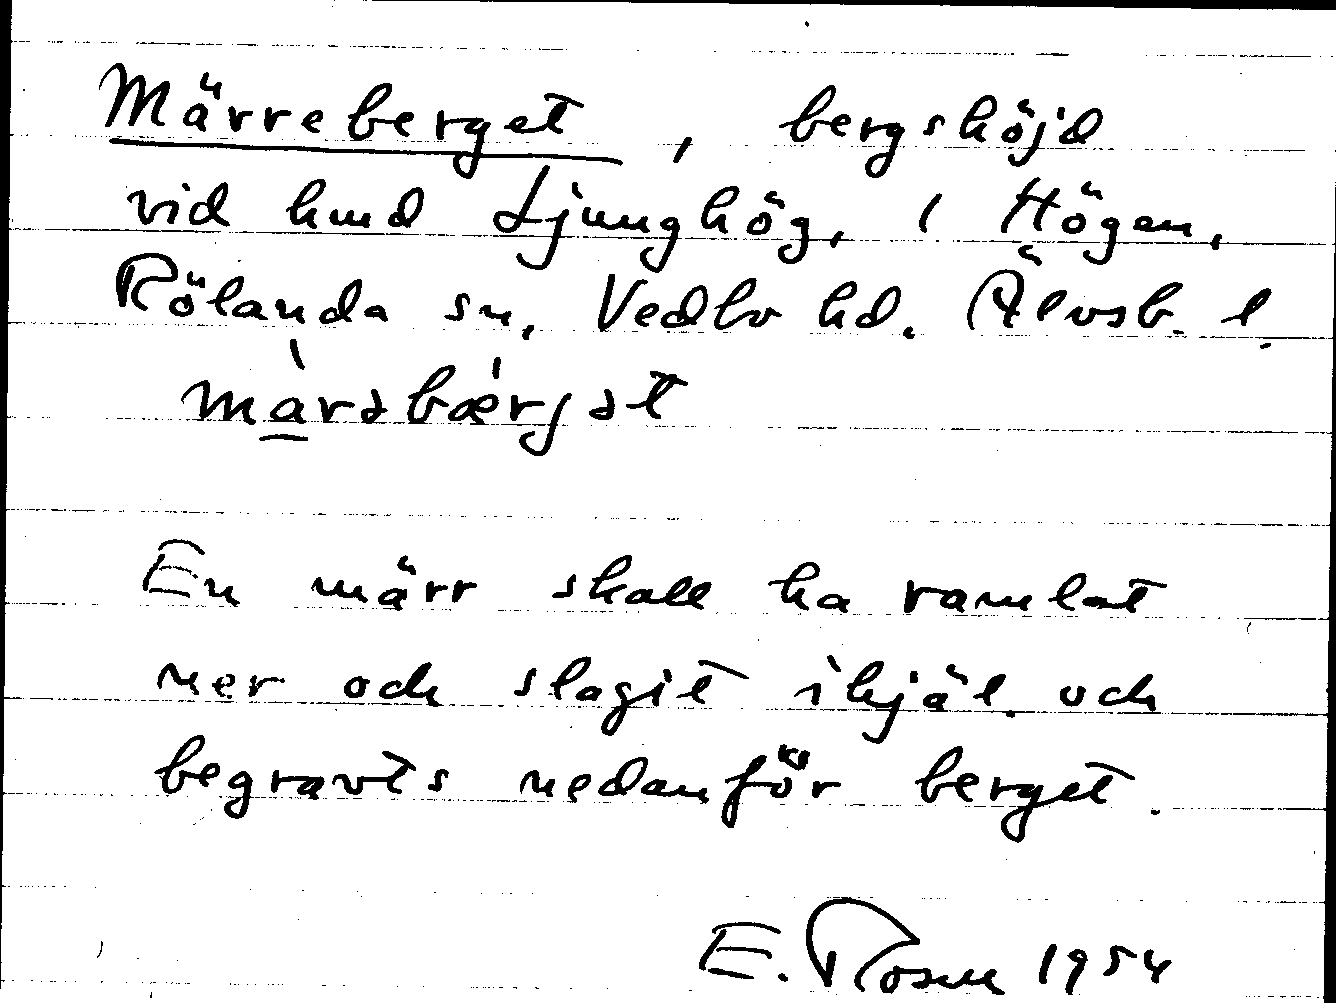 Märreberget, bergshöjd
vid hmd Ljunghög, 1 Högen,
Rölanda sn, Vedbo hd. Älvsb. l.
màrəbærjət
En märr skall ha ramlat
ner och slagit ihjäl och
begravts nedanför berget.
E. Rosen 1954